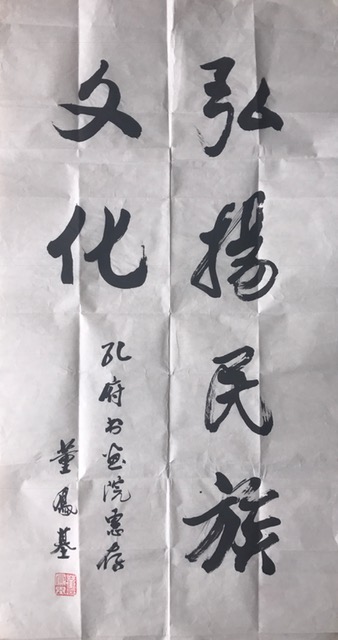 弘揚民族
文化
孔府书画院惠存
董鳳基